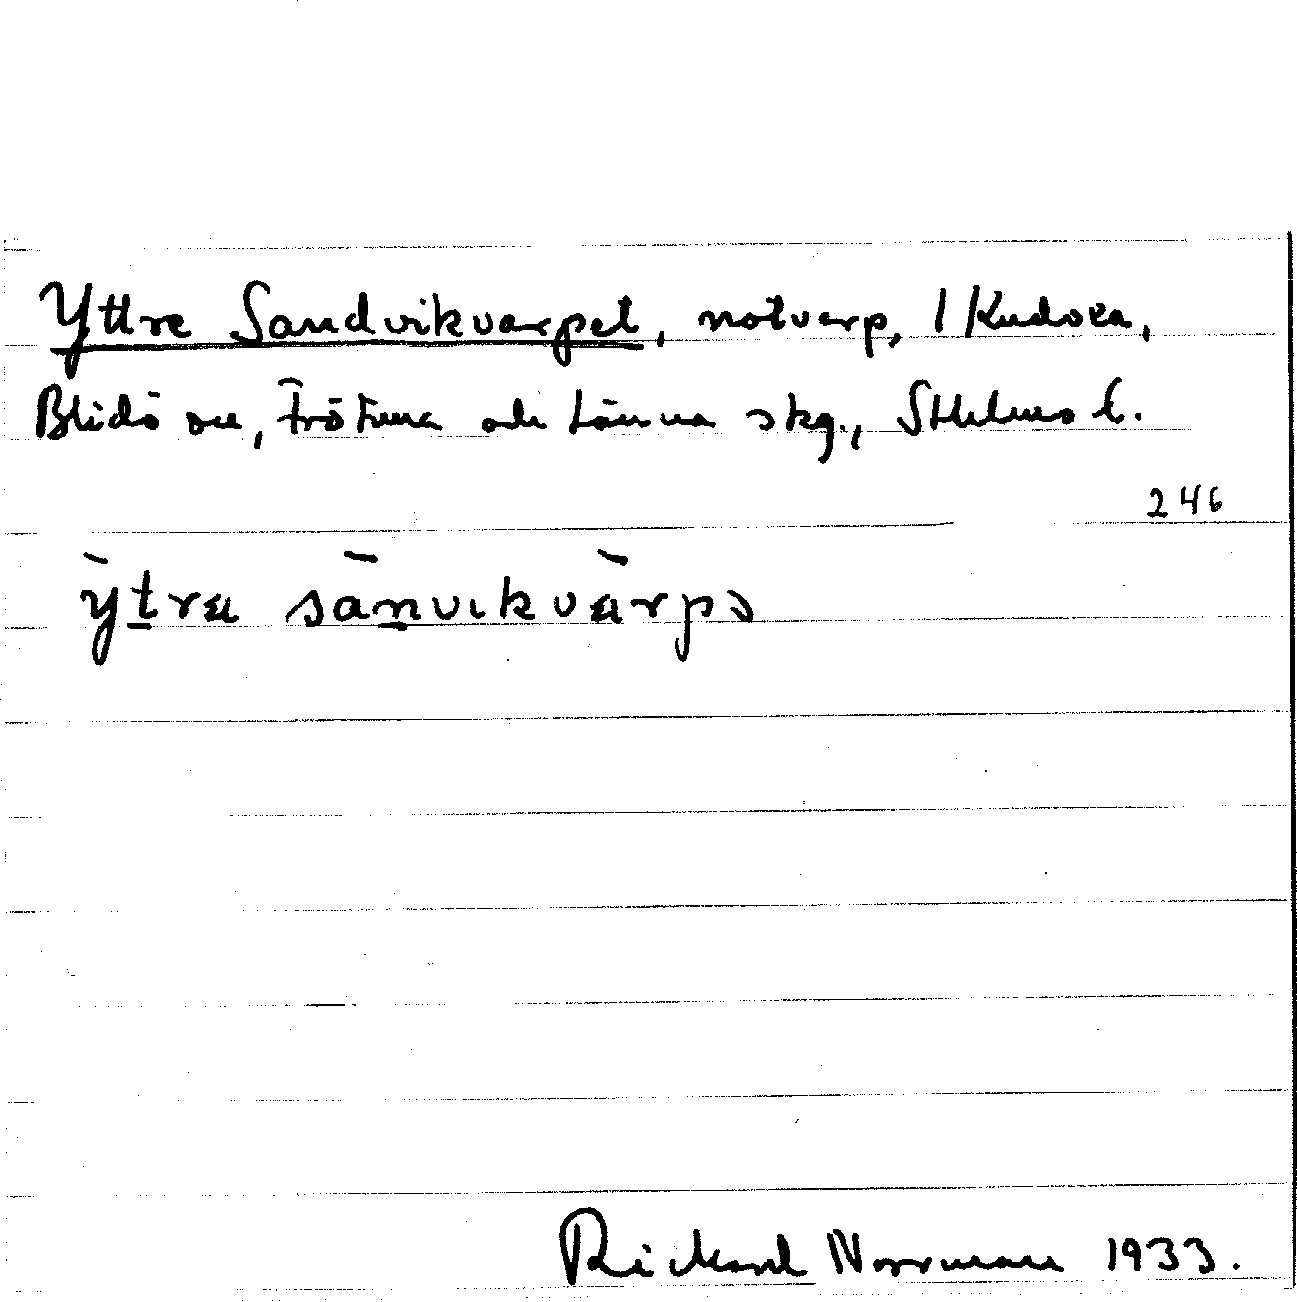 Yttre Sandvikvarpet, notvarp, 1 Kudoxa,
Blidö sn, Frötuna och Länna skg., Sthlms l.
246
ỳtra sànvikvàrpə
Rickard Norrman 1933.